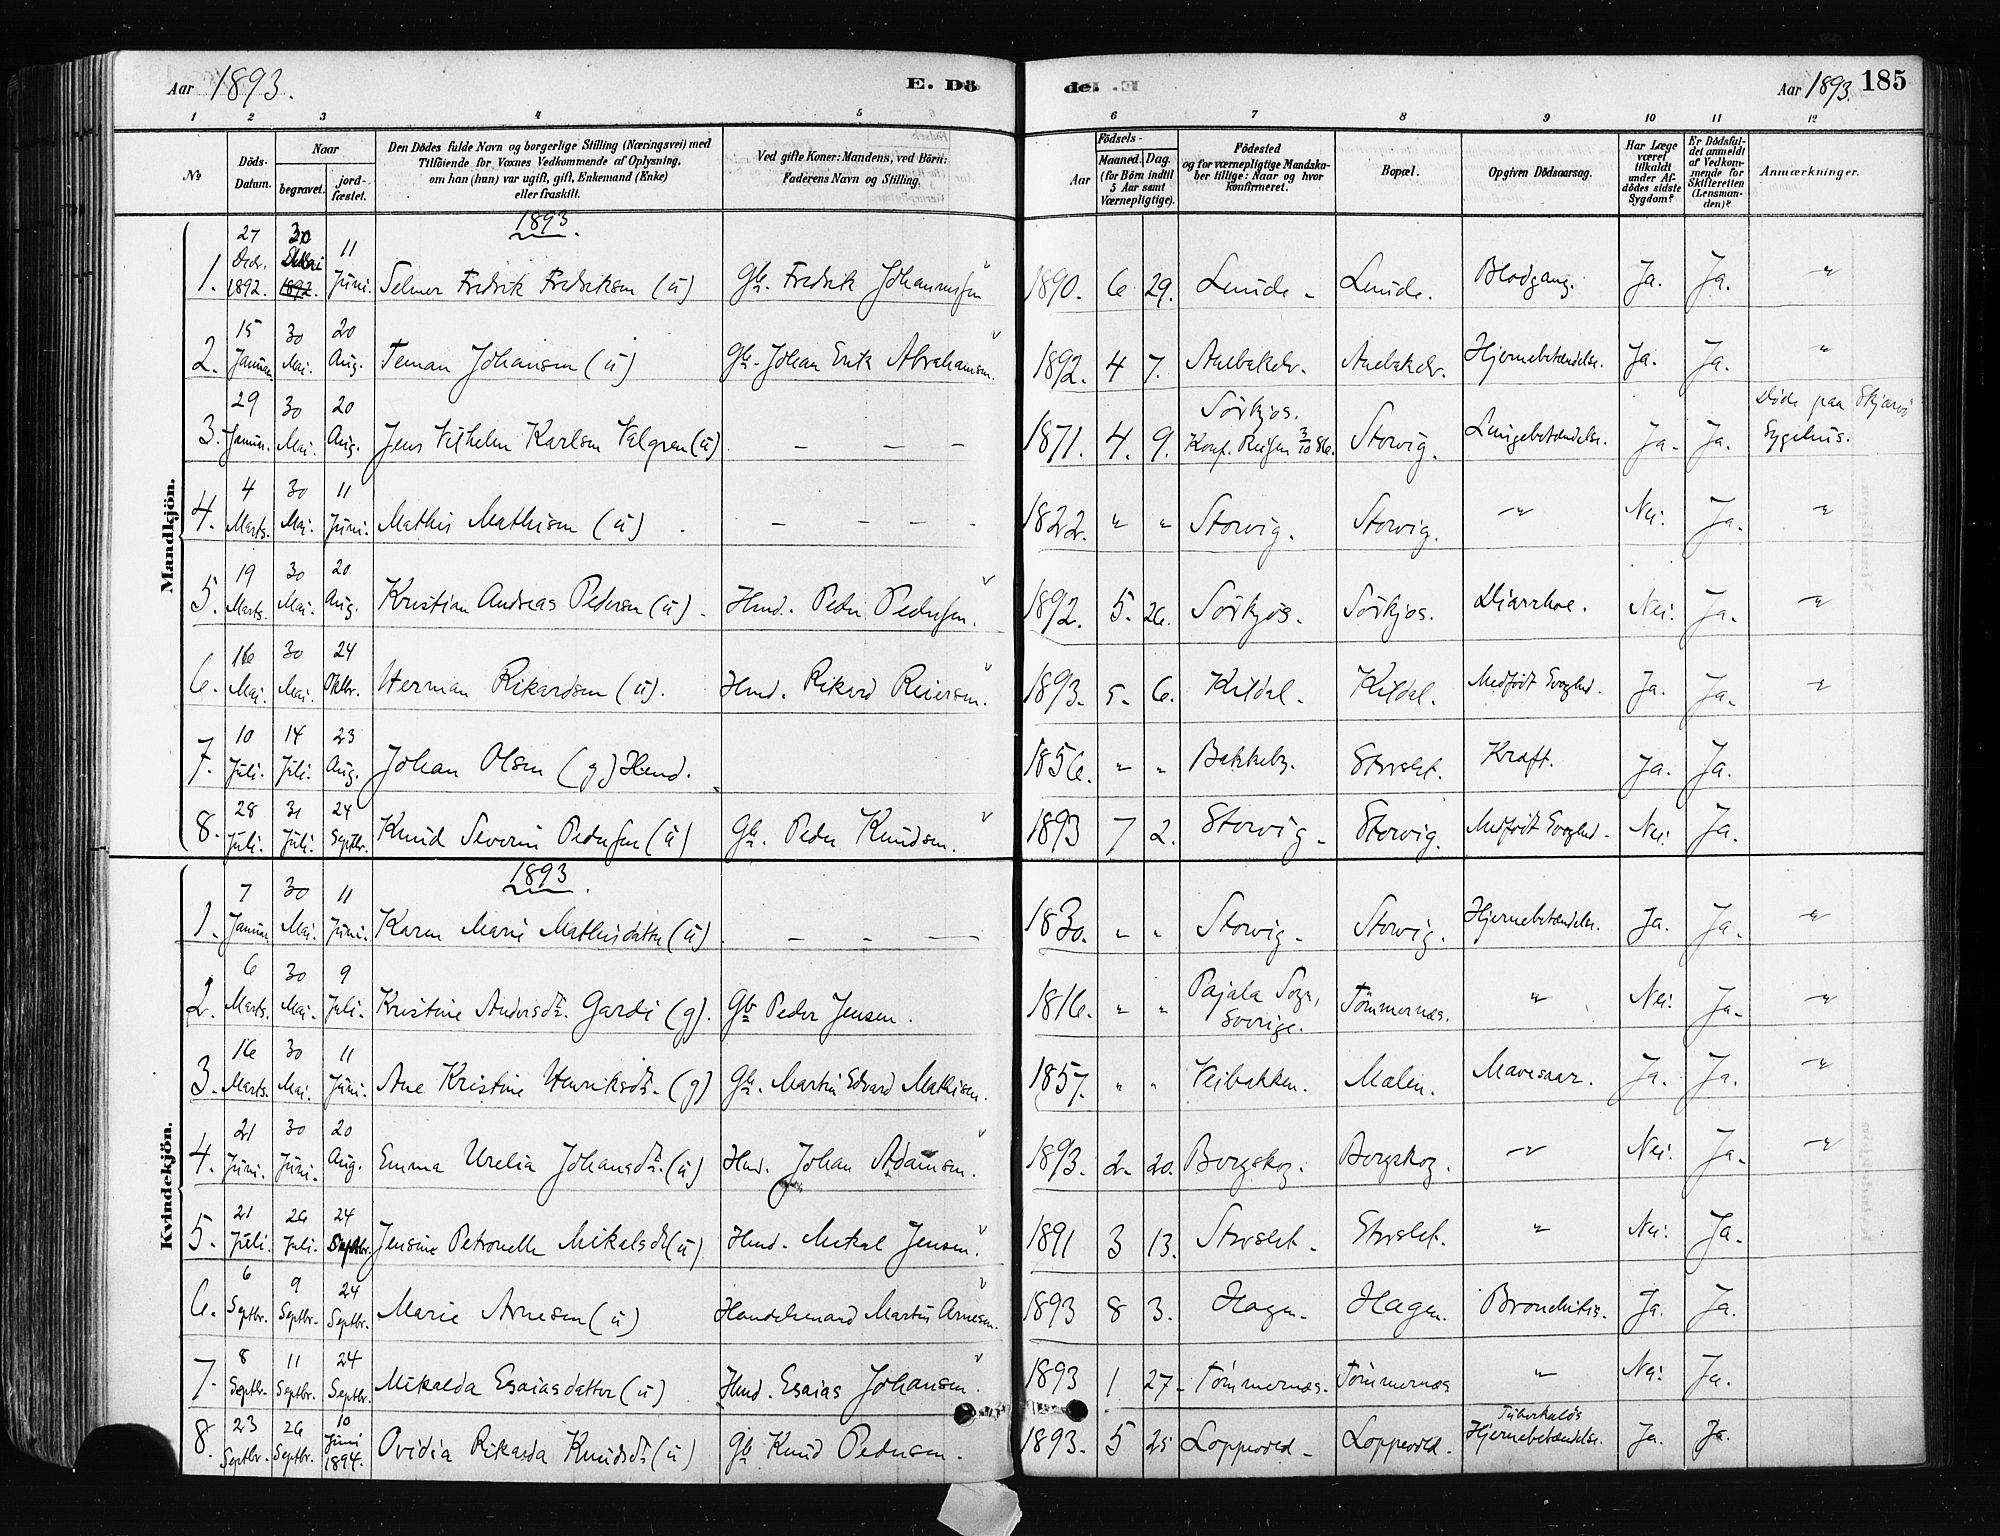 Aar 1893. E. Dö
de. Aar 1893. 185
1 2 3 4 5 6 7 8 9 10 11 12
No Döds-Datum. Naar begravet. jordfæstet. Den Dödes fulde Navn og borgerlige Stilling (Næringsvei) med Tilföiende for Voxnes Vedkommende af Oplysning, om han (hun) var ugift, gift, Enkemand (Enke) eller fraskilt. Ved gifte Koner: Mandens, ved Börn: Faderens Navn og Stilling.
Födsels- Aar Maaned. Dag. (for Börn indtil 5 Aar samt Værnepligtige). Födested og for værnepligtige Mandskaber tillige: Naar og hvor Konfirmeret. Bopæl. Opgiven Dödsaarsag. Har Læge været tilkaldt under Afdödes sidste Sygdom? Er Dödsfaldet anmeldt af Vedkommende for Skifteretten (Lensmanden)? Anmærkninger.
Mandkjön.
1893.
1. 27 Decbr. 1892. 30 1892. 11 Juni. Selmer Fredrik Fredriksen (u) Gbr. Fredrik Johannessen 1890. 6 29. Lunde - Lunde. Blodgang. Ja. Ja. "
2. 15 Januar. 30 Mai. 20 Aug. Teman Johansen (u) Gbr. Johan Erik Abrahamsen. 1892. 4 7. Hjernebetændelse. Ja. Ja. "
3. 29 Januar. 30 Mai. 20 Aug. Jens Vilhelm Karlsen Valgren (u). – – – 1871. 4. 9. Sörkjos. Konf. Reisen 3/10 86. Storvig. Lungebetændelse. Ja. Ja. Döde paa Skjærvö Sygehus.
4. 4 Marts. 30 Mai. 11 Juni. Mathis Mathisen (u) – – – – 1822. " " Storvig. Storvig. " Nei. Ja. "
5. 19 Marts. 30 Mai. 20 Aug. Kristian Andreas Pedersen (u). Hmd. Peder Pedersen. 1892. 5. 26. Sörkjos. Sörkjos. Diarrhoe. Nei. Ja. "
6. 16 Mai. 30 Mai. 24 Oktbr. Herman Rikardsen (u). Hmd. Rikard Reiersen. 1893. 5. 6. Kildal. Kildal. Medfödt Svaghed. Ja. Ja. "
7. 10 Juli. 14 Juli. 23 Aug. Johan Olsen (g) Hmd. 1856. " " Bakkeby. Storslet. Kræft. Ja. Ja.
8. 28 Juli. 31 Juli. 24 Septbr. Knud Severin Pedersen (u) Gbr. Peder Knudsen. 1893 7 2. Storvig. Storvig. Medfödt Svaghed. Nei. Ja.
Kvindekjön.
1893.
1. 7 Januar 30 Mai. 11 Juni. Karen Marie Mathisdatter (u). – – – 1830. " " Storvig. Storvig. Hjernebetændelse. Ja. Ja. "
2. 6 Marts. 30 Mai. 9 Juli. Kristine Andersdtr. Gardi (g). Gbr Peder Jensen. 1816. " " Pajala Sogn, Sverige. Tömmernæs. " Nei. Ja. "
3. 16 Marts. 30 Mai. 11 Juni. Ane Kristine Henriksdtr. (g) Gbr. Martin Edvard Mathisen. 1857. " " Veibakken. Mælen. Mavesaar. Ja. Ja. "
4. 21 Juni. 30 Juni. 20 Aug. Emma Urelia Johansdtr. (u) Hmd. Johan Adamsen. 1893. 2. 20. Borgskog. Borgskog. " Nei. Ja. "
5. 21 Juli. 26 Juli. 24 Septbr. Jensine Petronelle Mikalsdtr (u) Hmd. Mikal Jensen. 1891 3 13. Storslet. Storslet. " Nei. Ja.
6. 6 Septbr. 9 Septbr. 24 Septbr. Marie Arnesen (u) Handelsmand Martin Arnesen. 1893 8 3. Hagen. Hagen. Bronchitis. Ja. Ja.
7. 8 Septbr. 11 Septbr. 24 Septbr. Mikalda Esaiasdatter (u) Hmd. Esaias Johansen. 1893 1 27. Tömmernæs. Tömmernæs " Nei. Ja.
8. 23 Septbr. 26 Septbr. 10 Juni 1894. Ovidia Rikarda Knudsdtr (u) Gbr Knud Pedersen. 1893. 5 25 Loppevold. Loppevold. Tuberkulös Hjernebetændelse. Ja. Ja.